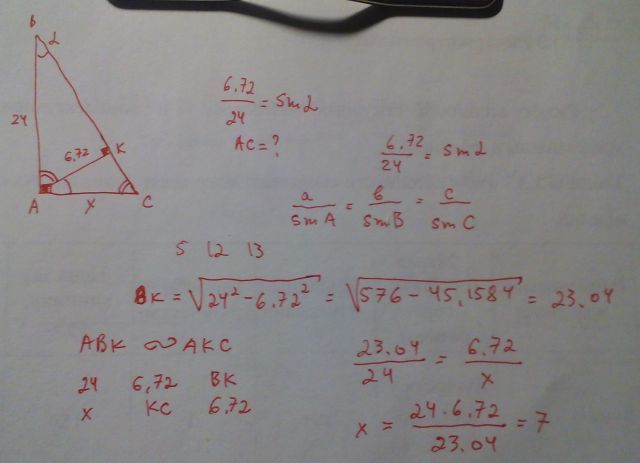 B
α
24
6,72
K
A
x
C
6.72/24 = sin α
AC = ?
6.72/24 = sin α
a/sin A = b/sin B = c/sin C
5 12 13
BK = √24² - 6.72² = √576 - 45,1584 = 23.04
ABK ∾ AKC
24 6,72 BK
x KC 6,72
23.04/24 = 6.72/x
x = 24 · 6.72/23.04 = 7